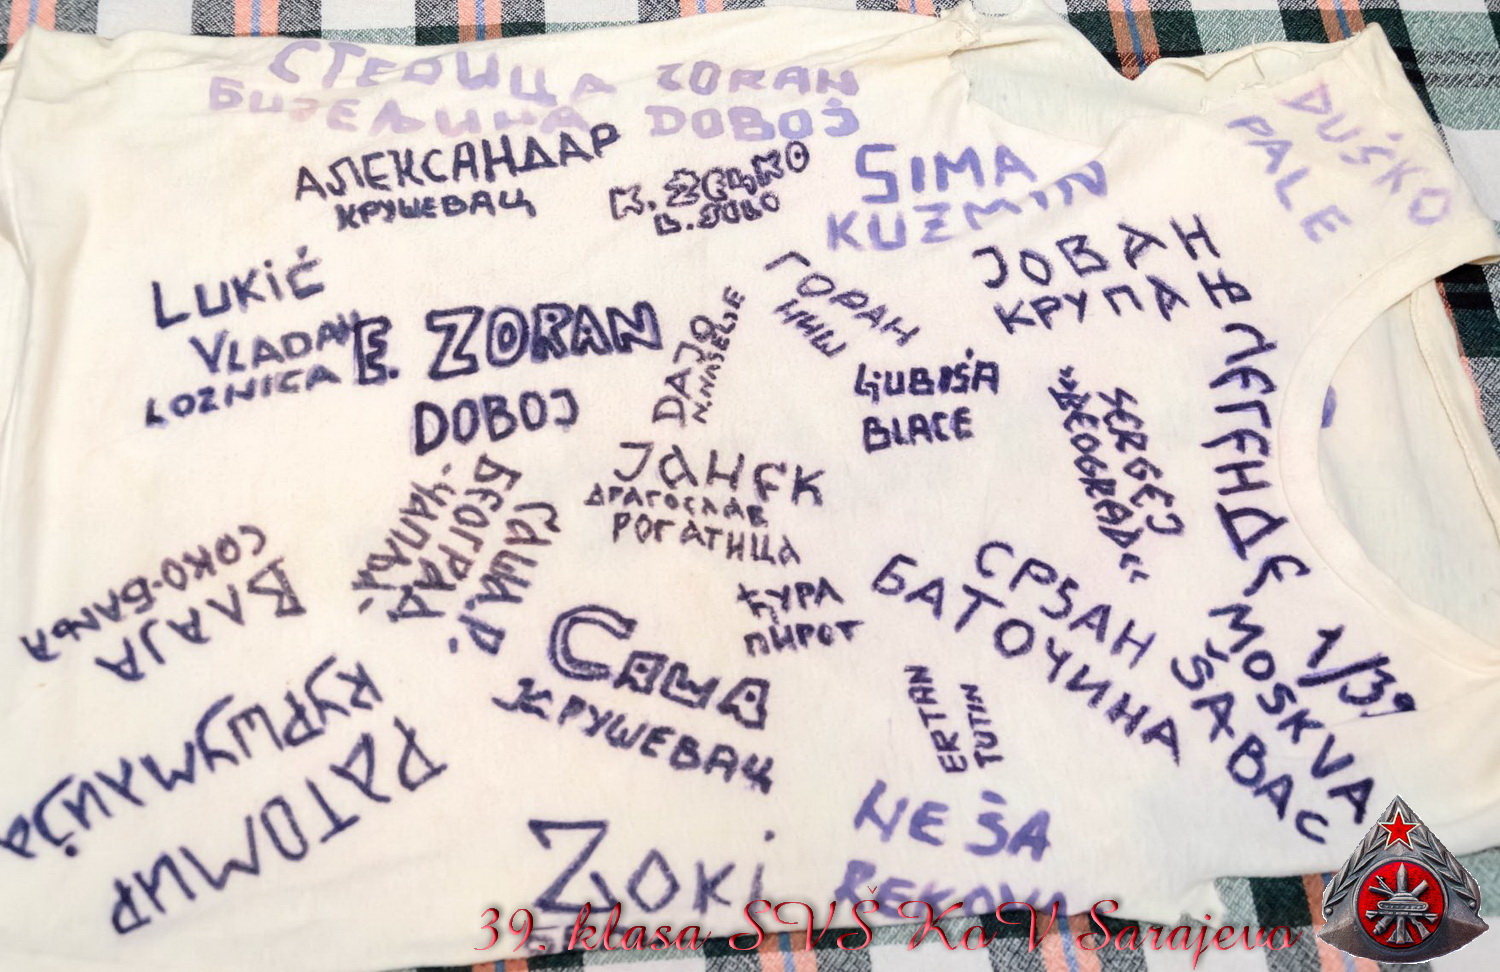 СТЕВИЦА
БИЈЕЉИНА
ZORAN
DOBOJ
DUŠKO
PALE
АЛЕКСАНДАР
КРУШЕВАЦ
SIMA
KUZMIN
ЈОВАН
КРУПА
LUKIĆ
VLADAN
LOZNICA
E. ZORAN
DOBOJ
DAJO
N.NASELJE
ГОРАН
НИШ
LJUBIŠA
BLACE
SERGEJ
"BEOGRAD"
ЛЕГЕНДЕ
1/39
ЈАНЕК
ДРАГОСЛАВ
РОГАТИЦА
САША.Р.
БЕОГРАД
ВЛАЈА
СОКО-БАЊА
ЂУРА
ПИРОТ
СРЂАН
БАТОЧИНА
MOSKVA
ŠABAC
САША
КРУШЕВАЦ
ERTAN
TUTIN
РАТОМИР
КУРШУМЛИЈА
ZOKI
NEŠA
REKOVAC
39. klasa SVŠ KoV Sarajevo